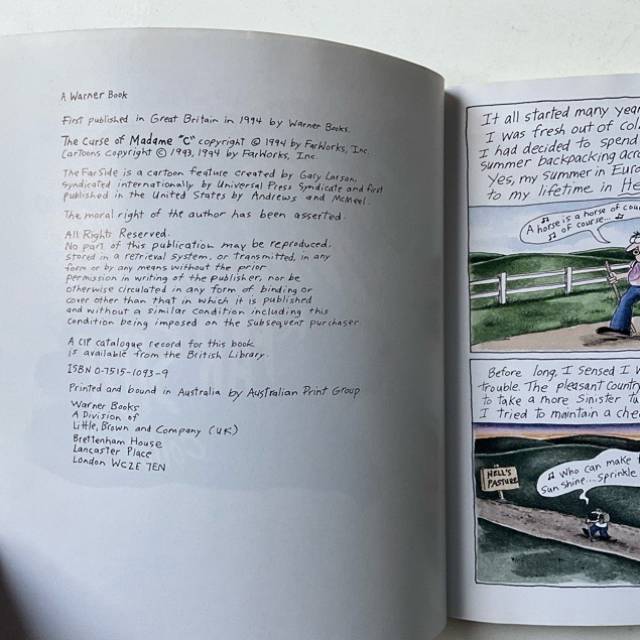 A Warner Book
First published in Great Britain in 1994 by Warner Books.
The Curse of Madame "C" copyright © 1994 by FarWorks, Inc.
Cartoons copyright © 1993, 1994 by FarWorks, Inc.
The FarSide is a cartoon feature created by Gary Larson,
Syndicated internationally by Universal Press Syndicate and first
published in the United States by Andrews and McMeel.
The moral right of the author has been asserted.
All Rights Reserved.
No part of this publication may be reproduced,
stored in a retrieval system, or transmitted, in any
form or by any means without the prior
permission in writing of the publisher, nor be
otherwise circulated in any form of binding or
cover other than that in which it is published
and without a similar condition including this
condition being imposed on the subsequent purchaser.
A CIP catalogue record for this book
is available from the British Library.
ISBN 0-7515-1093-9
Printed and bound in Australia by Australian Print Group
Warner Books
A Division of
Little, Brown and Company (UK)
Brettenham House
Lancaster Place
London WC2E 7EN
It all started many year
I was fresh out of col
I had decided to spend
summer backpacking acr
Yes, my summer in Euro
to my lifetime in He
A horse is a horse of cour
of course...
Before long, I sensed I w
trouble. The pleasant country
to take a more sinister tu
I tried to maintain a chee
HELL'S
PASTURE
Who can make t
Sun shine... sprinkle